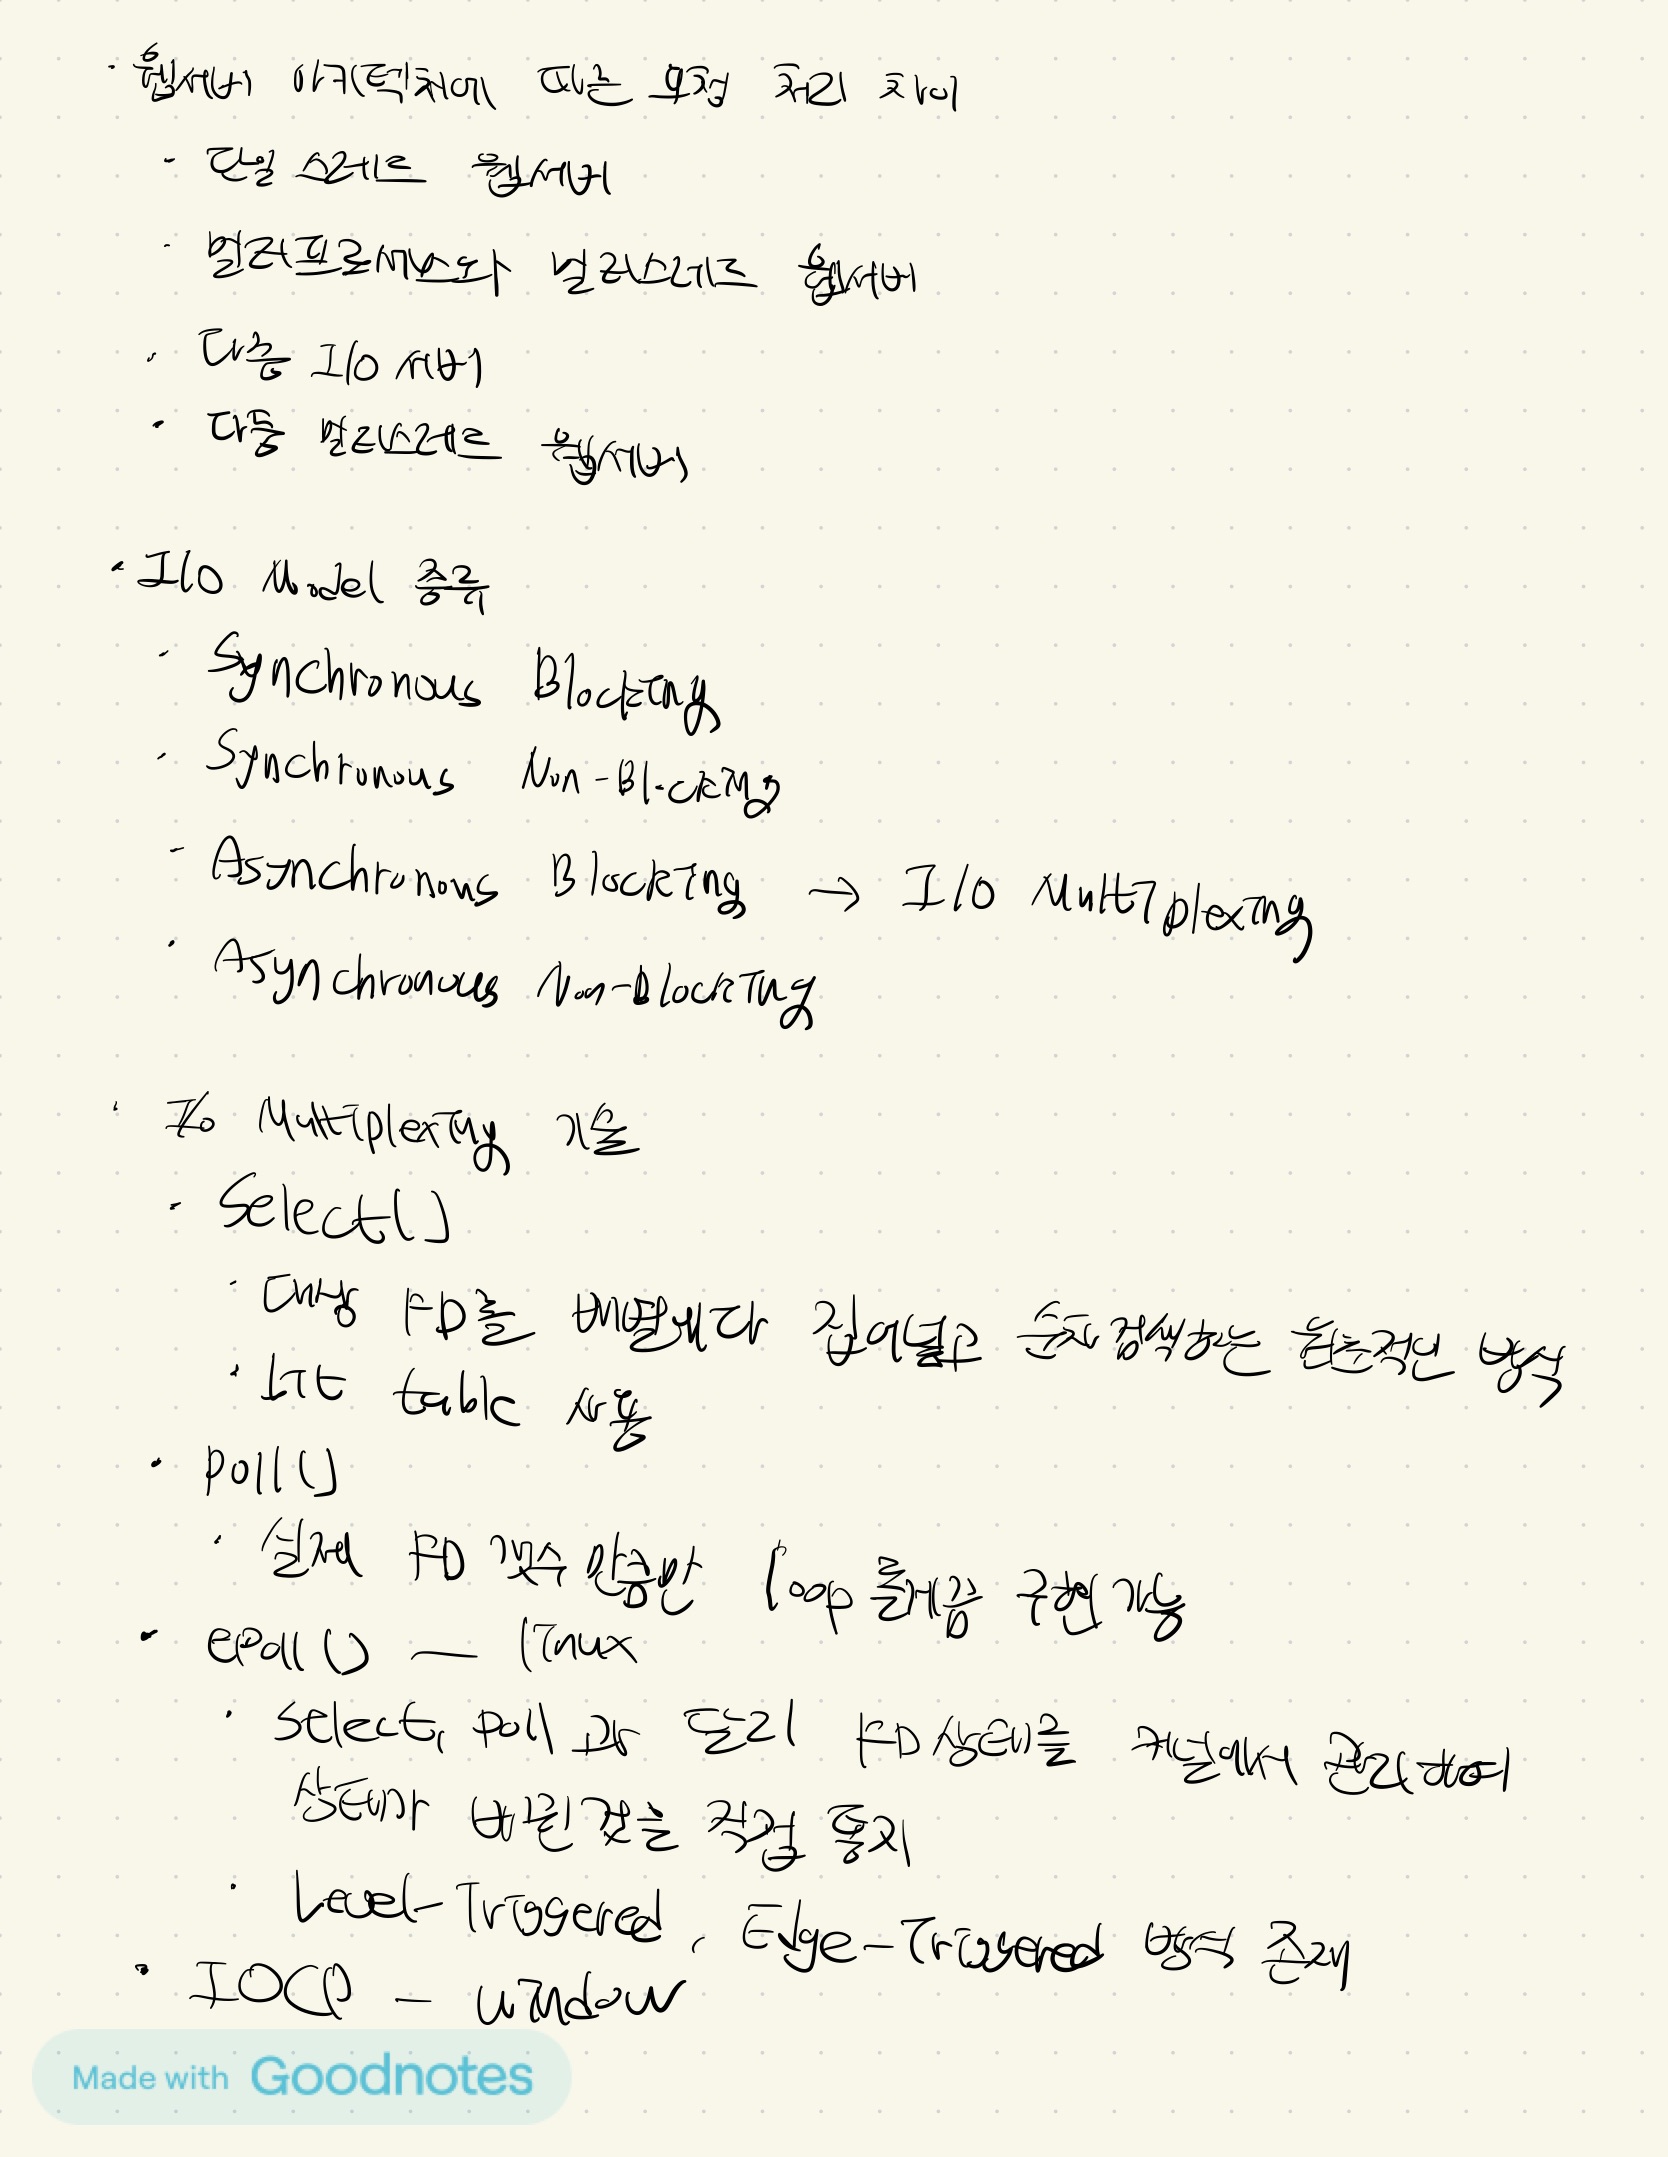 · 웹서버 아키텍처에 따른 요청 처리 차이
- 단일 스레드 웹서버
- 멀티프로세스와 멀티스레드 웹서버
· 다중 I/O 서버
· 다중 멀티스레드 웹서버
· I/O Model 종류
- Synchronous Blocking
- Synchronous Non-Blocking
- Asynchronous Blocking → I/O Multiplexing
· Asynchronous Non-Blocking
· I/O Multiplexing 기술
- Select()
· 대상 FD를 배열에다 집어넣고 순차 검색하는 원초적인 방식
· bit table 사용
· poll()
· 실제 FD 갯수 만큼만 loop 돌게끔 구현 가능
· epoll() — linux
· select, poll 과 달리 FD 상태를 커널에서 관리하여
상태가 바뀐것을 직접 통지
· Level-Triggered, Edge-Triggered 방식 존재
· IOCP - window
Made with Goodnotes